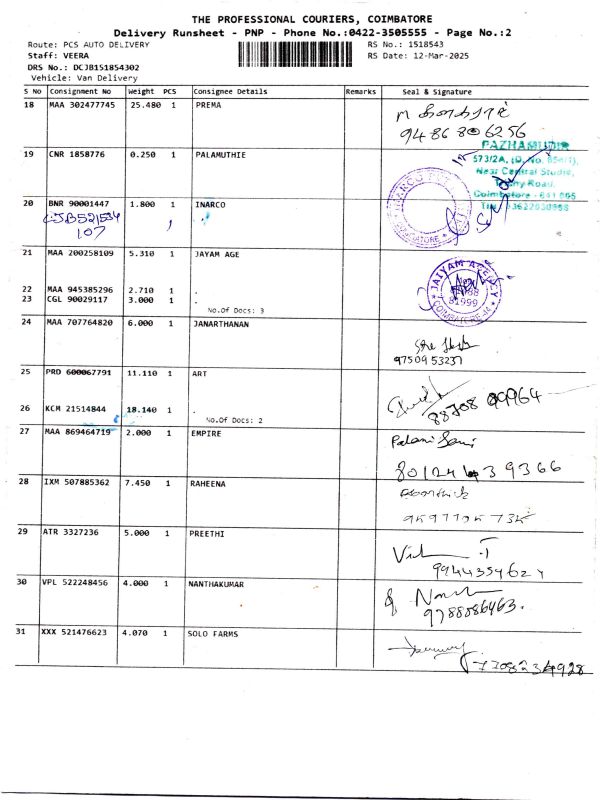 THE PROFESSIONAL COURIERS, COIMBATORE
Delivery Runsheet - PNP - Phone No.:0422-3505555 - Page No.:2
Route: PCS AUTO DELIVERY RS No.: 1518543
Staff: VEERA RS Date: 12-Mar-2025
DRS No.: DCJB151854302
Vehicle: Van Delivery
S No Consignment No Weight PCS Consignee Details Remarks Seal & Signature
18 MAA 302477745 25.480 1 PREMA
94868 06256
19 CNR 1858776 0.250 1 PALAMUTHIE
PAZHAMUDIR
573/2A,
Near Central Studio,
Road,
Coimbatore - 641 005
20 BNR 90001447 1.800 1 INARCO
107
21 MAA 200258109 5.310 1 JAYAM AGE
JAIYAM AGENCY
81999
COIMBATORE
22 MAA 945385296 2.710 1 .
23 CGL 90029117 3.000 1 .
No.Of Docs: 3
24 MAA 707764820 6.000 1 JANARTHANAN
9750953237
25 PRD 600067791 11.110 1 ART
88708 89964
26 KCM 21514844 18.140 1 .
No.Of Docs: 2
27 MAA 869464719 2.000 1 EMPIRE
Palani Sami
8012439366
28 IXM 507885362 7.450 1 RAHEENA
29 ATR 3327236 5.000 1 PREETHI
9944354624
30 VPL 522248456 4.000 1 NANTHAKUMAR
9788886463.
31 XXX 521476623 4.070 1 SOLO FARMS
7708234928